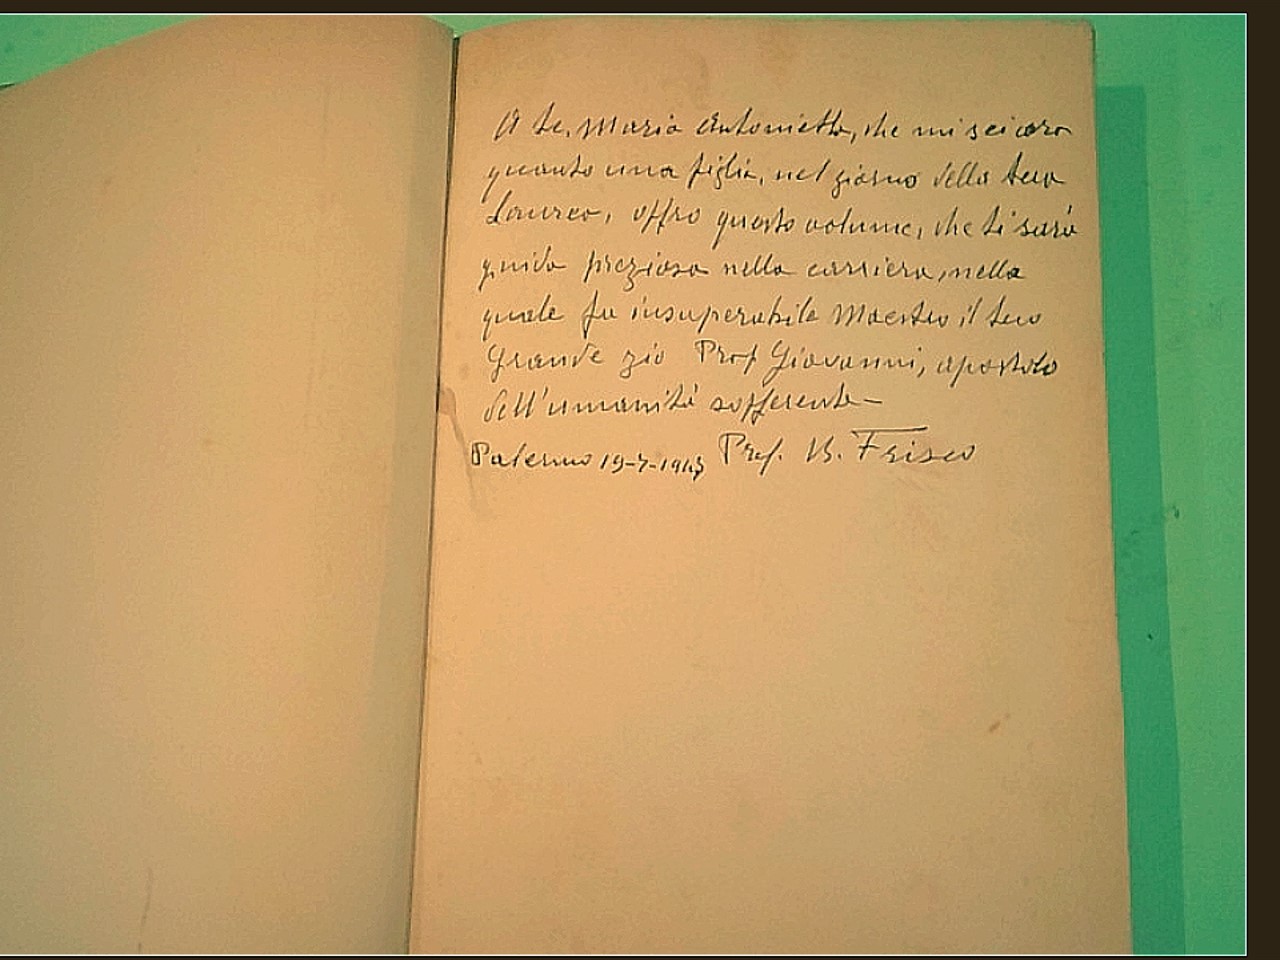 A te, Maria Antonietta, che mi sei cara
quanto una figlia, nel giorno della tua
Laurea, offro questo volume, che ti sarà
guida preziosa nella carriera, nella
quale fu insuperabile Maestro il tuo
Grande zio Prof Giovanni, apostolo
dell'umanità sofferente –
Palermo Prof. B. Frisco